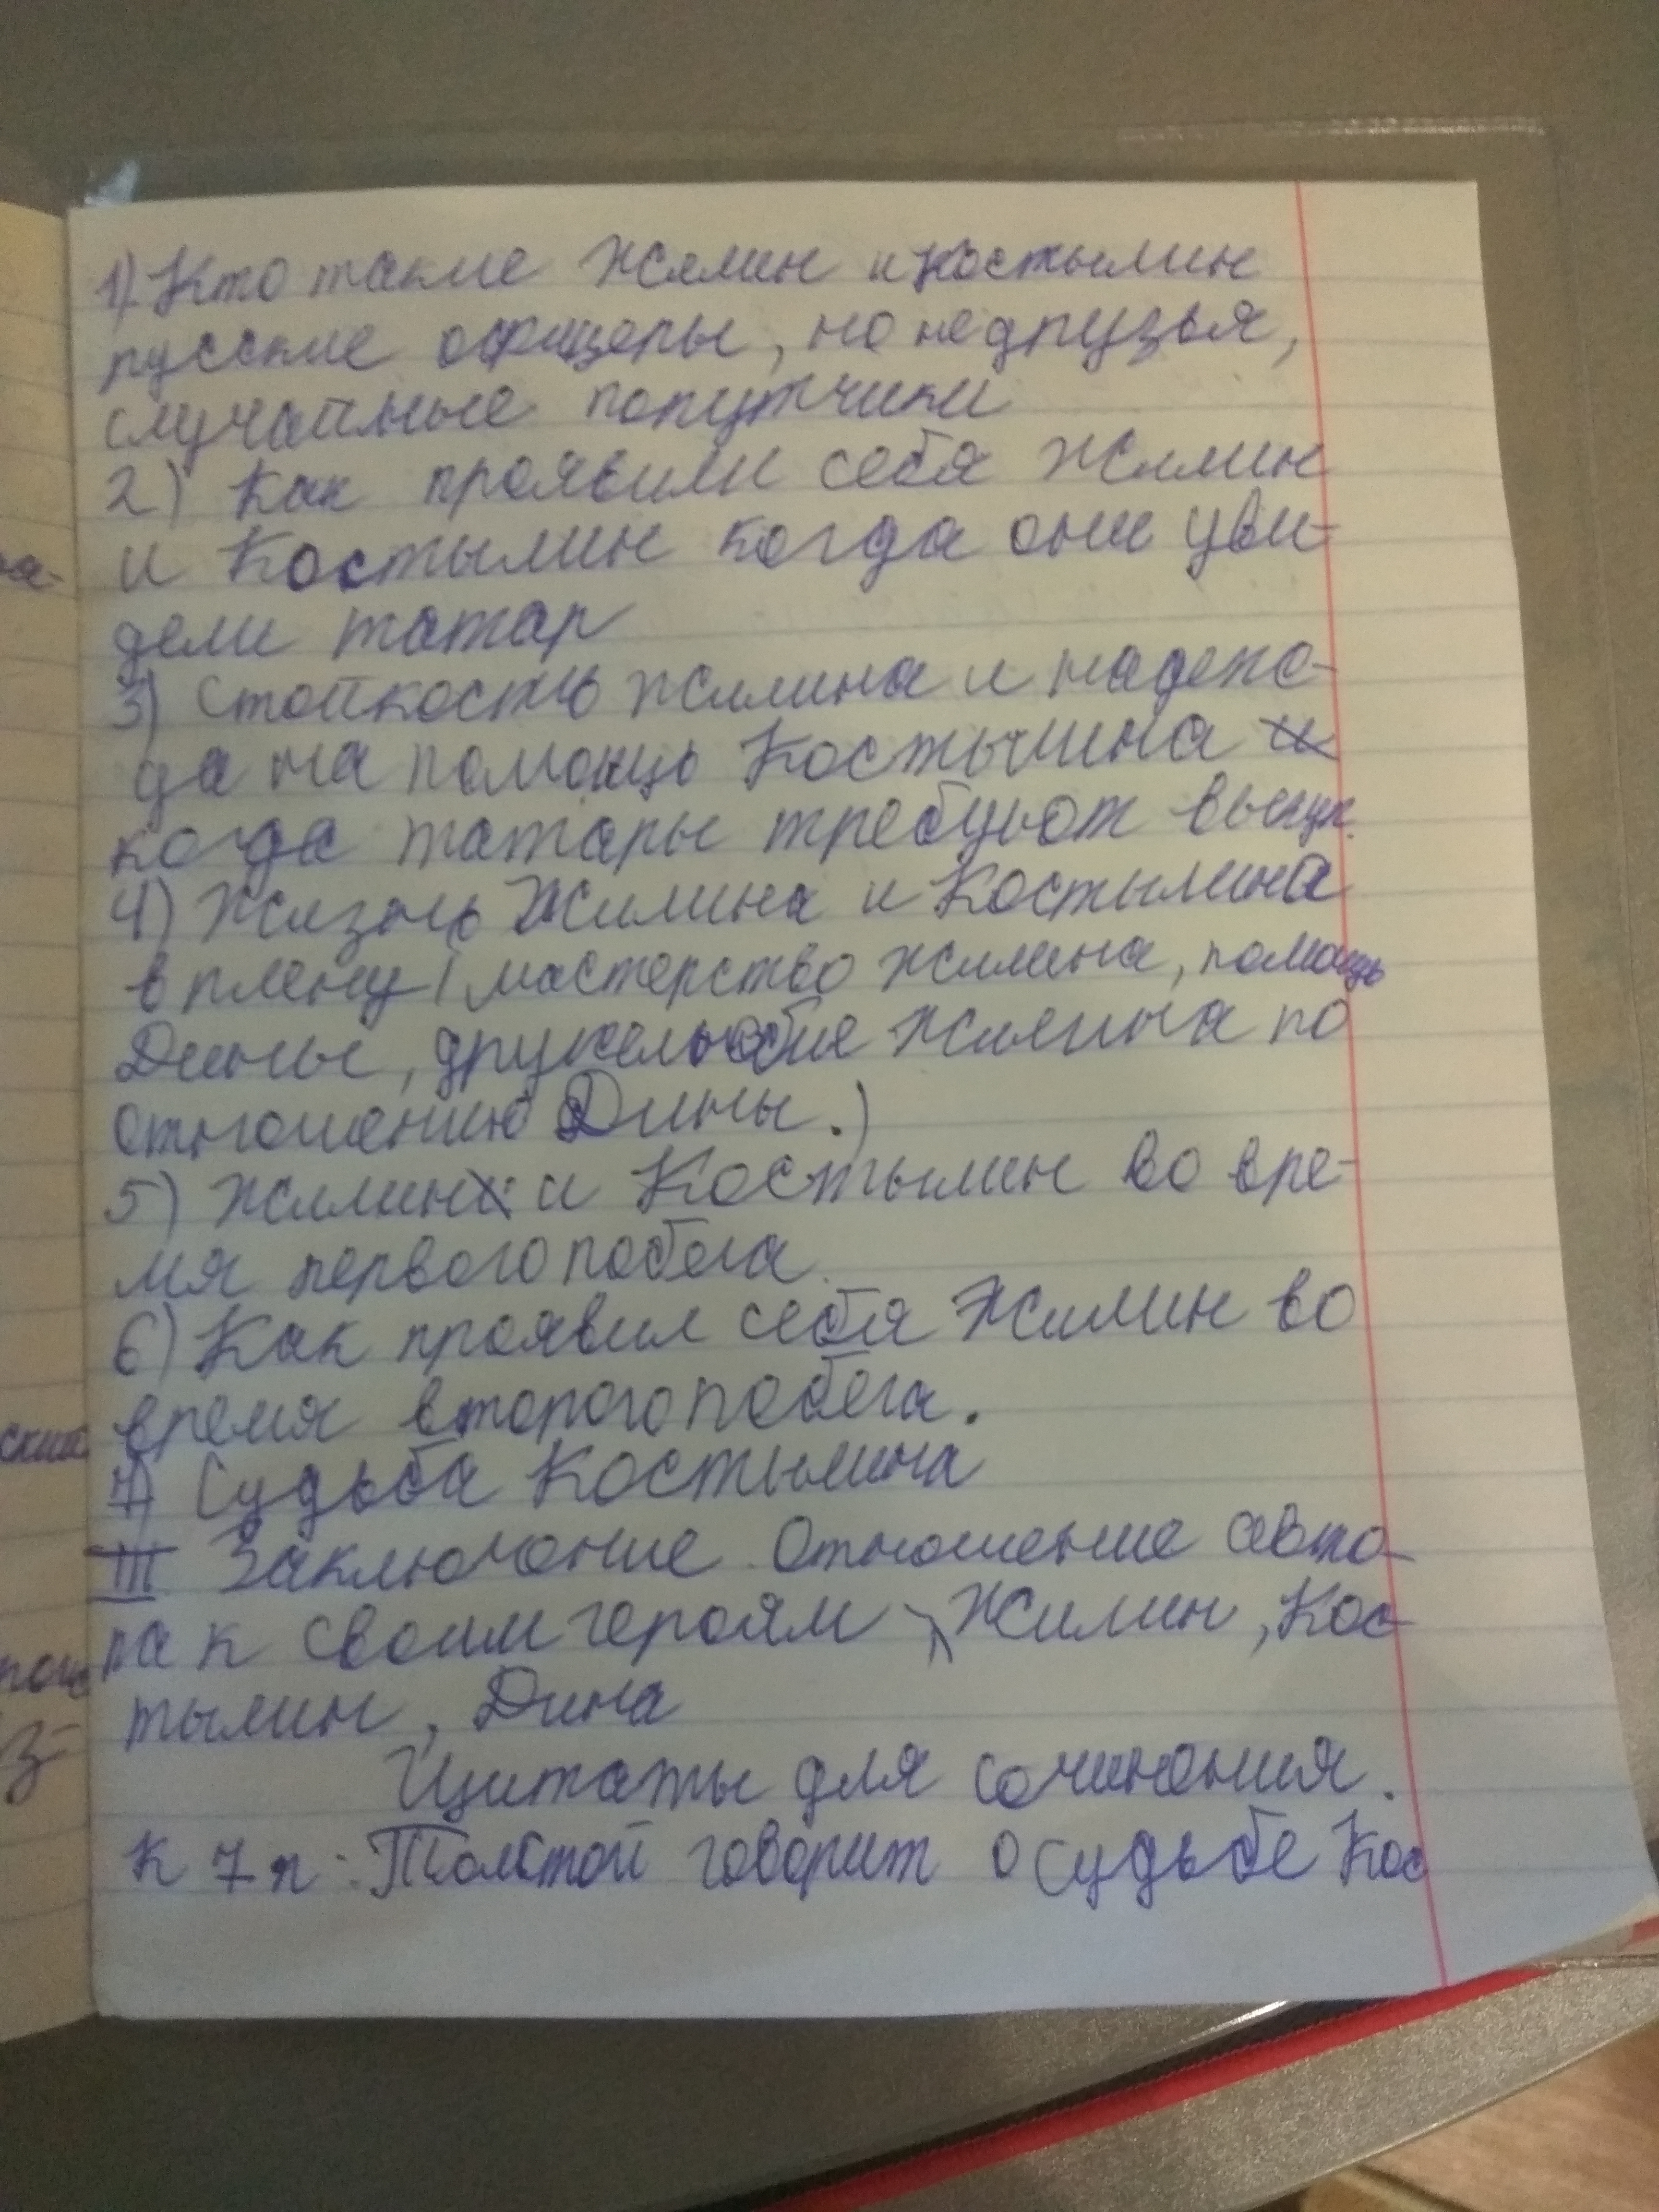 1) Кто такие Жилин и Костылин
русские офицеры, но не друзья,
случайные попутчики
2) Как проявили себя Жилин
и Костылин когда они уви-
дели татар
3) Стойкость Жилина и надеж-
да на помощь Костылина и
когда татары требуют выкуп.
4) Жизнь Жилина и Костылина
в плену (мастерство Жилина, помощь
Дины, дружелюбие Жилина по
отношению Дины.)
5) Жилин и Костылин во вре-
мя первого побега.
6) Как проявил себя Жилин во
время второго побега.
7) Судьба Костылина
III Заключение. Отношение авто-
ра к своим героям Жилин, Кос-
тылин, Дина
Цитаты для сочинения.
К 7 п: Толстой говорит о судьбе Кос